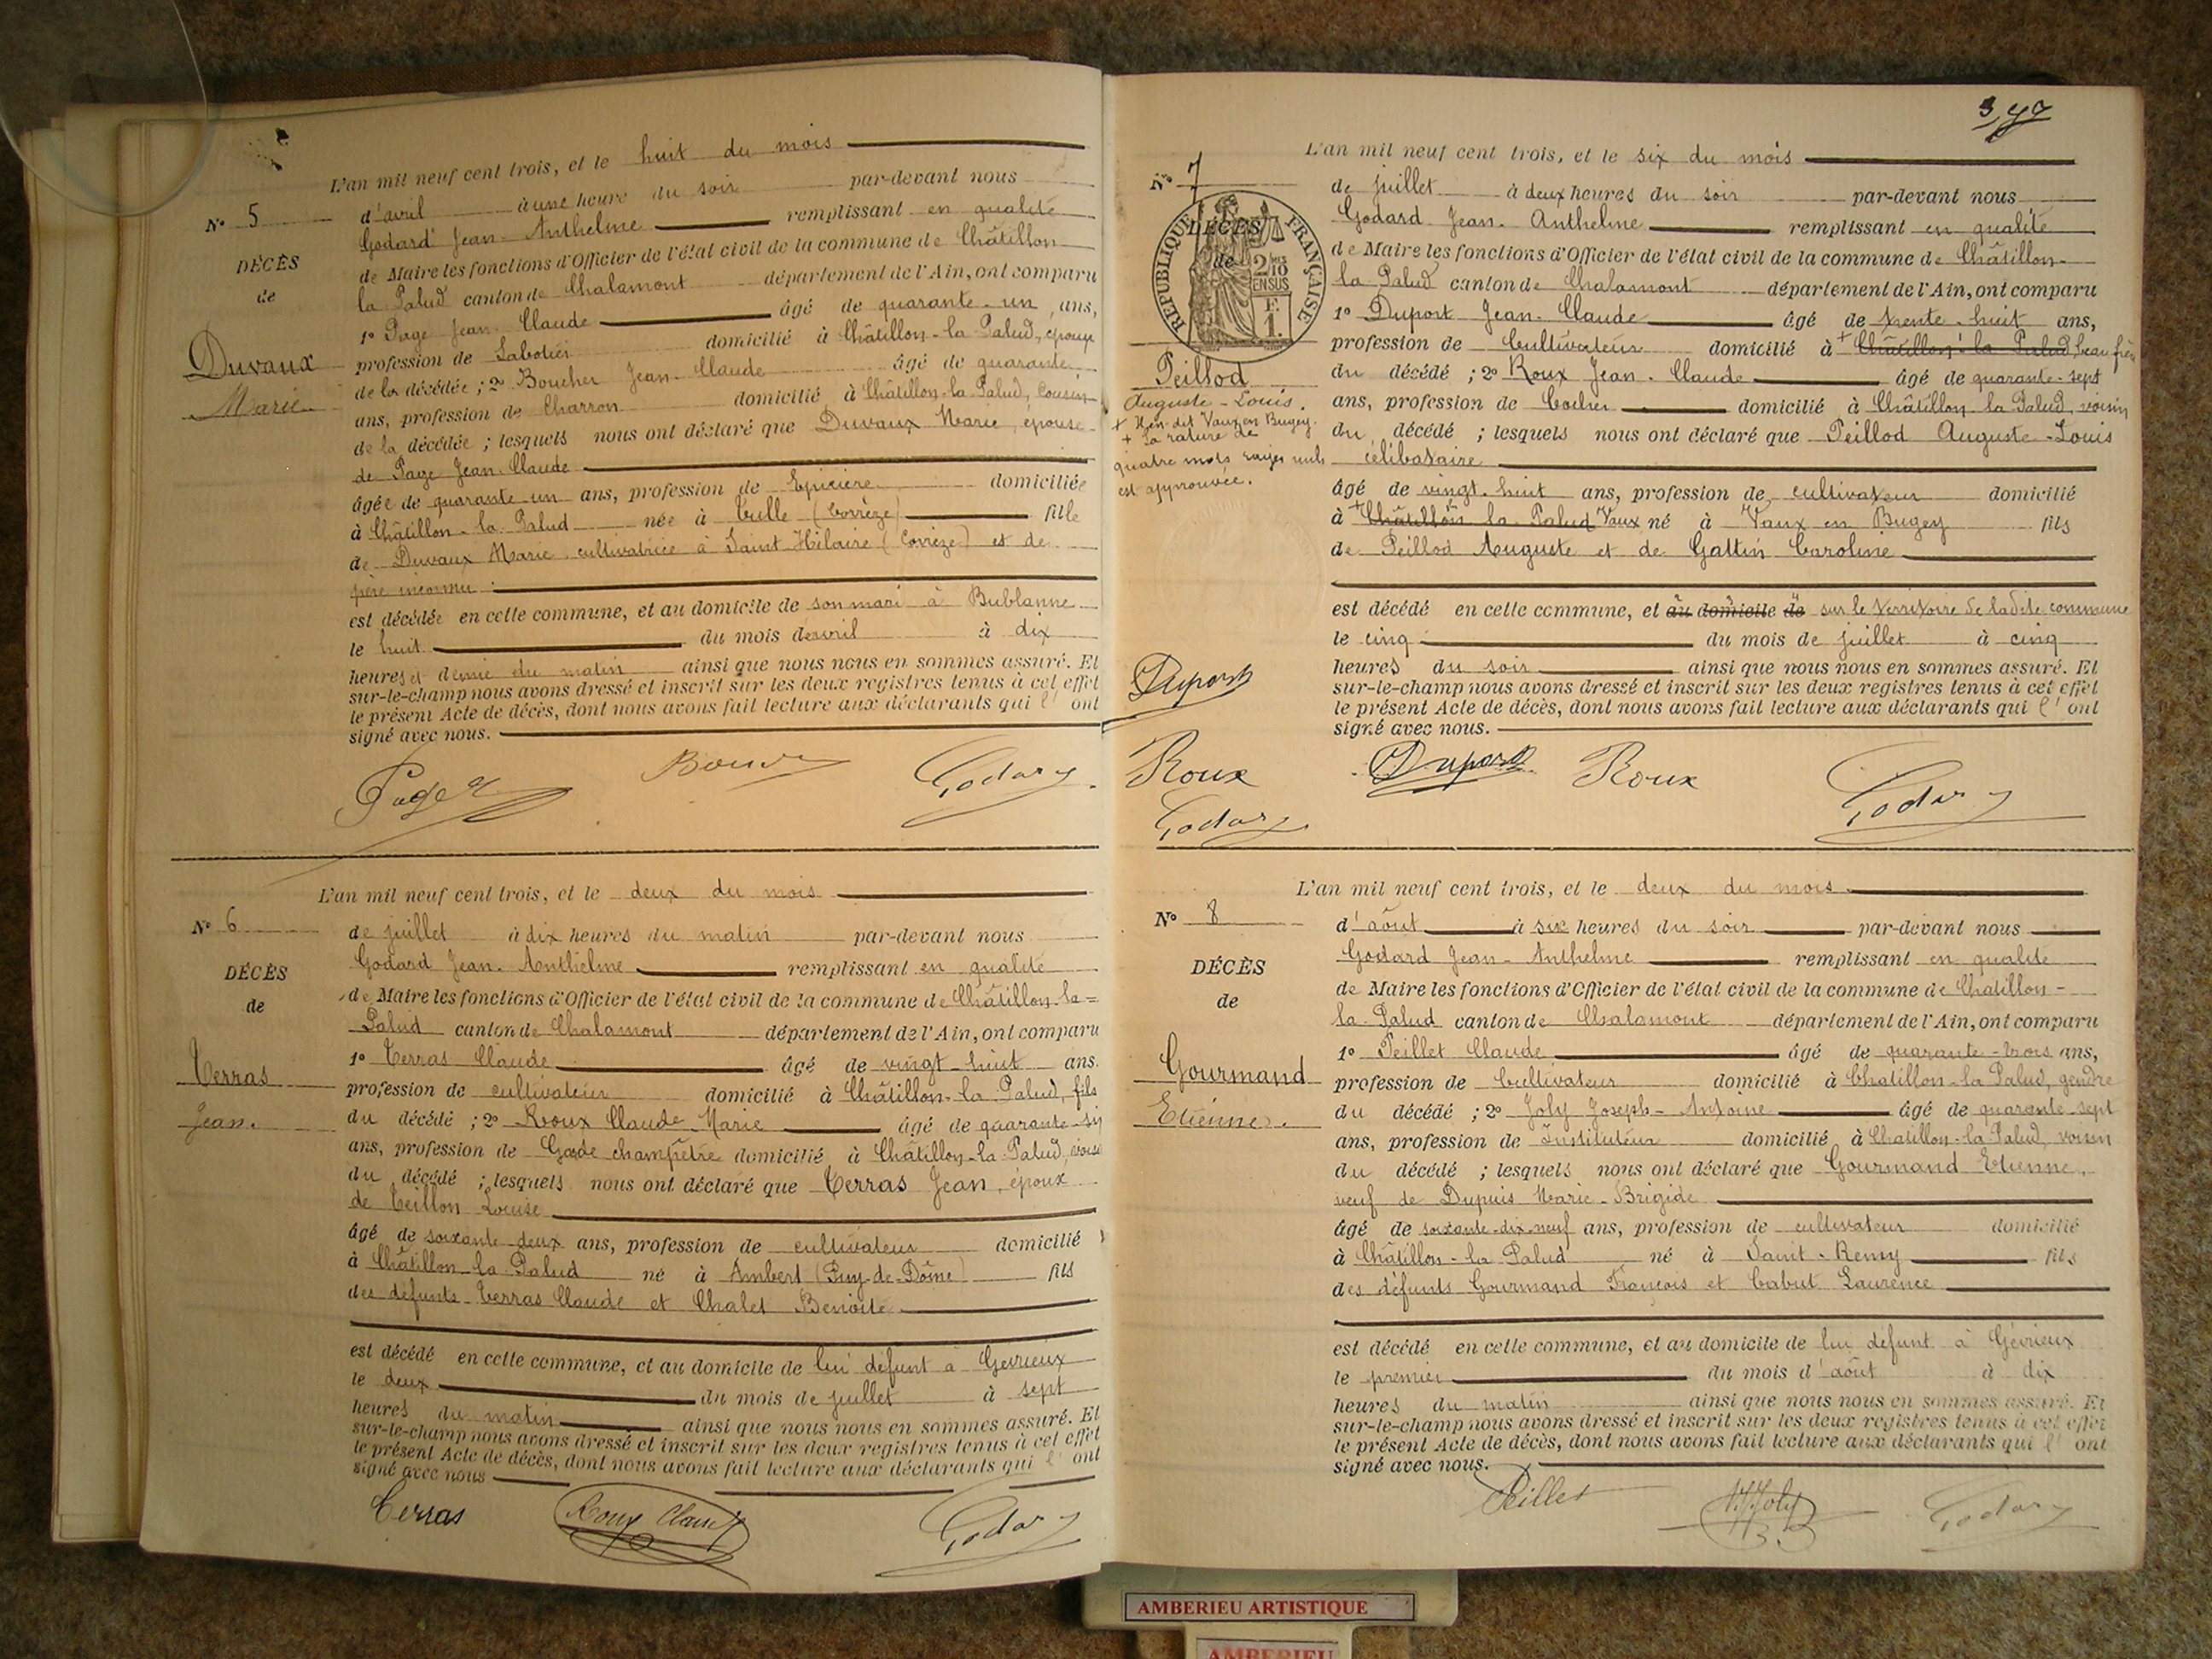 L'an mil neuf cent trois, et le huit du mois
N° 5
d'avril à une heure du soir par-devant nous
Godard Jean-Anthelme remplissant en qualité
DÉCÈS
de
de Maire les fonctions d'Officier de l'état civil de la commune de Châtillon
la Palud canton de Chalamont département de l'Ain, ont comparu
1° Page Jean-Claude âgé de quarante-un ans,
Duvaux
Marie
profession de Sabotier domicilié à Châtillon-la-Palud, époux
de la décédée ; 2° Boucher Jean-Claude âgé de quarante
ans, profession de Charron domicilié à Châtillon-la-Palud, cousin
de la décédée ; lesquels nous ont déclaré que Duvaux Marie, épouse
de Page Jean-Claude
âgée de quarante un ans, profession de Epicière domiciliée
à Châtillon-la-Palud née à Tulle (Corrèze) fille
de Duvaux Marie cultivatrice à Saint-Hilaire (Corrèze) et de
père inconnu
est décédée en cette commune, et au domicile de son mari à Bublanne
le huit du mois d'avril à dix
heures et demie du matin ainsi que nous nous en sommes assuré. Et
sur-le-champ nous avons dressé et inscrit sur les deux registres tenus à cet effet
le présent Acte de décès, dont nous avons fait lecture aux déclarants qui l'ont
signé avec nous.
Page Godard
L'an mil neuf cent trois, et le deux du mois
N° 6
de juillet à dix heures du matin par-devant nous
Godard Jean-Anthelme remplissant en qualité
DÉCÈS
de
de Maire les fonctions d'Officier de l'état civil de la commune de Châtillon-la=
Palud canton de Chalamont département de l'Ain, ont comparu
1° Terras Claude âgé de vingt-huit ans.
Terras
Jean.
profession de cultivateur domicilié à Châtillon-la-Palud, fils
du décédé ; 2° Roux Claude-Marie âgé de quarante-six
ans, profession de Garde champêtre domicilié à Châtillon-la-Palud, voisin
du décédé ; lesquels nous ont déclaré que Terras Jean, époux
de Teillon Louise
âgé de soixante-deux ans, profession de cultivateur domicilié
à Châtillon-la-Palud né à Ambert (Puy-de-Dôme) fils
des défunts Terras Claude et Chalet Benoîte
est décédé en cette commune, et au domicile de lui défunt à Gevrieux
le deux du mois de juillet à sept
heures du matin ainsi que nous nous en sommes assuré. Et
sur-le-champ nous avons dressé et inscrit sur les deux registres tenus à cet effet
le présent Acte de décès, dont nous avons fait lecture aux déclarants qui l'ont
signé avec nous
Terras Roux Claude Godard
L'an mil neuf cent trois, et le six du mois
N° 7
de juillet à deux heures du soir par-devant nous
Godard Jean-Anthelme remplissant en qualité
DÉCÈS
de
RÉPUBLIQUE FRANÇAISE
2/10 EN SUS
F. 1.
de Maire les fonctions d'Officier de l'état civil de la commune de Châtillon-
la Palud canton de Chalamont département de l'Ain, ont comparu
1° Duport Jean-Claude âgé de trente-huit ans,
profession de Cultivateur domicilié à + Châtillon-la-Palud, beau frère
Peillod
Auguste-Louis.
du décédé ; 2° Roux Jean-Claude âgé de quarante-sept
ans, profession de Cocher domicilié à Châtillon-la-Palud, voisin
du décédé ; lesquels nous ont déclaré que Peillod Auguste-Louis
célibataire
+ dit Vaux en Bugey.
+ la rature de
quatre mots rayés nuls
est approuvée.
âgé de vingt-huit ans, profession de cultivateur domicilié
à + Châtillon la Palud Vaux né à Vaux en Bugey fils
de Peillod Auguste et de Gattin Caroline
est décédé en cette commune, et au domicile de sur le territoire de ladite commune
le cinq du mois de juillet à cinq
heures du soir ainsi que nous nous en sommes assuré. Et
sur-le-champ nous avons dressé et inscrit sur les deux registres tenus à cet effet
le présent Acte de décès, dont nous avons fait lecture aux déclarants qui l'ont
signé avec nous.
Duport
Roux
Godard
Duport Roux Godard
L'an mil neuf cent trois, et le deux du mois
N° 8
d'août à six heures du soir par-devant nous
Godard Jean-Anthelme remplissant en qualité
DÉCÈS
de
de Maire les fonctions d'Officier de l'état civil de la commune de Chatillon-
la-Palud canton de Chalamont département de l'Ain, ont comparu
1° Peillet Claude âgé de quarante-trois ans,
Gourmand
Etienne.
profession de Cultivateur domicilié à Chatillon-la-Palud, gendre
du décédé ; 2° Joly Joseph-Antoine âgé de quarante-sept
ans, profession de Instituteur domicilié à Chatillon-la-Palud, voisin
du décédé ; lesquels nous ont déclaré que Gourmand Etienne,
veuf de Dupuis Marie-Brigide
âgé de soixante-dix-neuf ans, profession de cultivateur domicilié
à Châtillon-la-Palud né à Saint-Remy fils
des défunts Gourmand François et Cabut Laurence
est décédé en cette commune, et au domicile de lui défunt à Gévrieux
le premier du mois d'août à dix
heures du matin ainsi que nous nous en sommes assuré. Et
sur-le-champ nous avons dressé et inscrit sur les deux registres tenus à cet effet
le présent Acte de décès, dont nous avons fait lecture aux déclarants qui l'ont
signé avec nous.
Peillet Joly Godard
AMBERIEU ARTISTIQUE
AMBERIEU